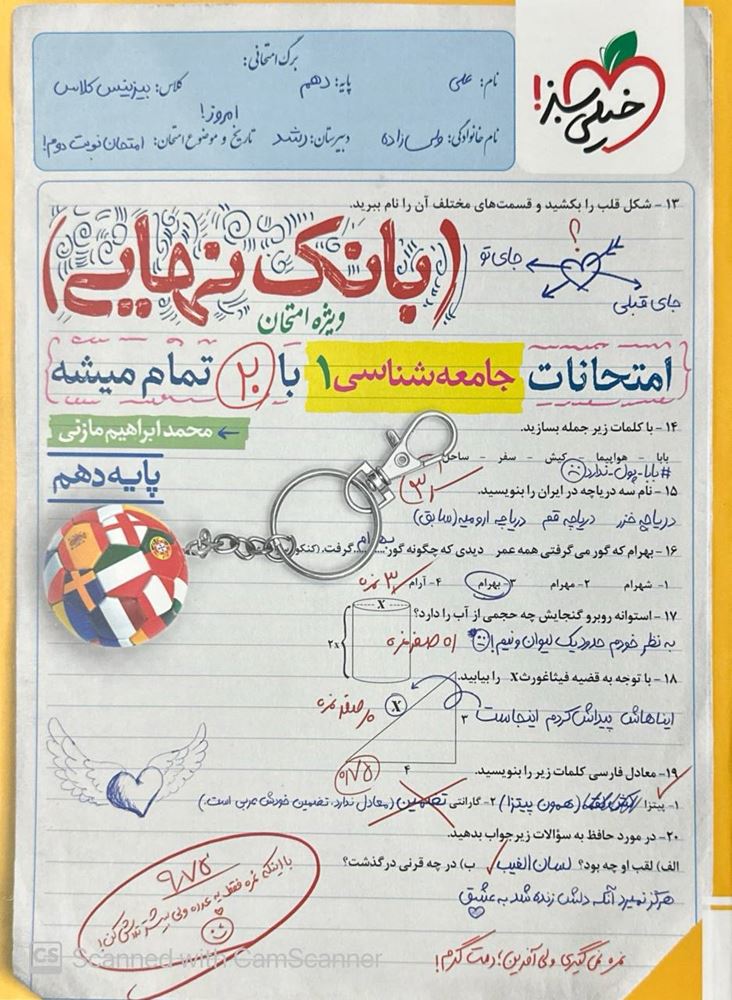 خیلی سبز!
برگ امتحانی:
نام: علی پایه: دهم کلاس: بیزینس کلاس
امروز!
نام خانوادگی: ولی‌زاده دبیرستان: رشد تاریخ و موضوع امتحان: امتحان نوبت دوم!
۱۳ - شکل قلب را بکشید و قسمت‌های مختلف آن را نام ببرید.
؟
جای تو
جای قبلی
(بانک نهایی)
ویژه امتحان
امتحانات جامعه‌شناسی ۱ با ۲۰ تمام میشه
۱۴ - با کلمات زیر جمله بسازید.
← محمد ابراهیم مازنی
بابا - هواپیما - کیش - سفر - ساحل
#بابا-پول-ندارد
پایه دهم
۱۵ - نام سه دریاچه در ایران را بنویسید.
دریاچه خزر دریاچه قم دریاچه ارومیه (سابق)
۱۶ - بهرام که گور می‌گرفتی همه عمر دیدی که چگونه گور بهرام گرفت. (کنکور
۱- شهرام ۲- مهرام ۳- بهرام ۴- آرام
۱۷ - استوانه روبرو گنجایش چه حجمی از آب را دارد؟
X
۲x
به نظر خودم حدود یک لیوان و نیم!
۱۸ - با توجه به قضیه فیثاغورث X را بیابید.
X
ایناهاش پیداش کردم اینجاست
۳
۴
۰/۷۵
۱۹- معادل فارسی کلمات زیر را بنویسید.
۱- پیتزا (همون پیتزا) ۲- گارانتی تضمین (معادل ندارد، تضمین خودش عربی است.)
۲۰- در مورد حافظ به سؤالات زیر جواب بدهید.
الف) لقب او چه بود؟ لسان الغیب ب) در چه قرنی درگذشت؟
هرگز نمیرد آنکه دلش زنده شد به عشق
۹/۷۵
با اینکه نمره فقط یه عدده ولی بیشتر تلاش کن!
نمره نمی‌گیری ولی آفرین! دمت گرم!
CS Scanned with CamScanner